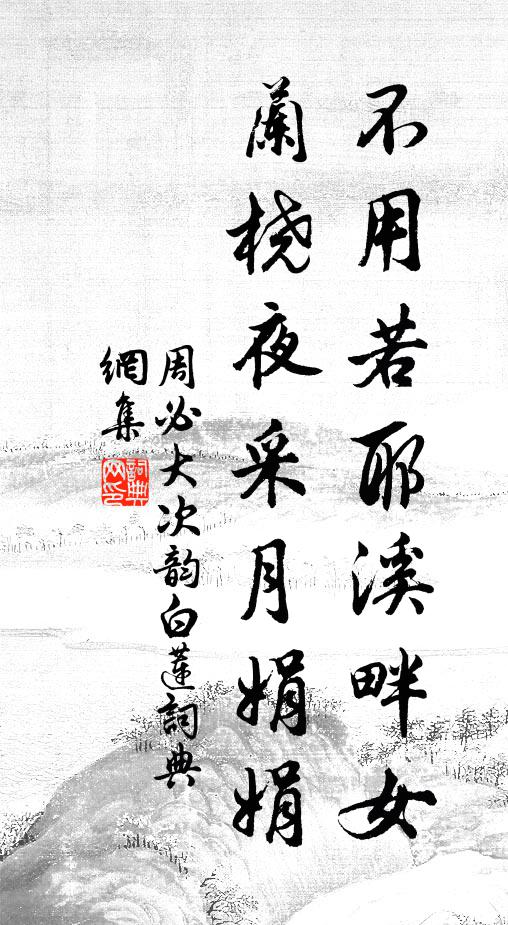 不用若耶溪畔女
蘭桡夜采月娟娟
周必大次韵白蓮詞典
網集
詞典
网印